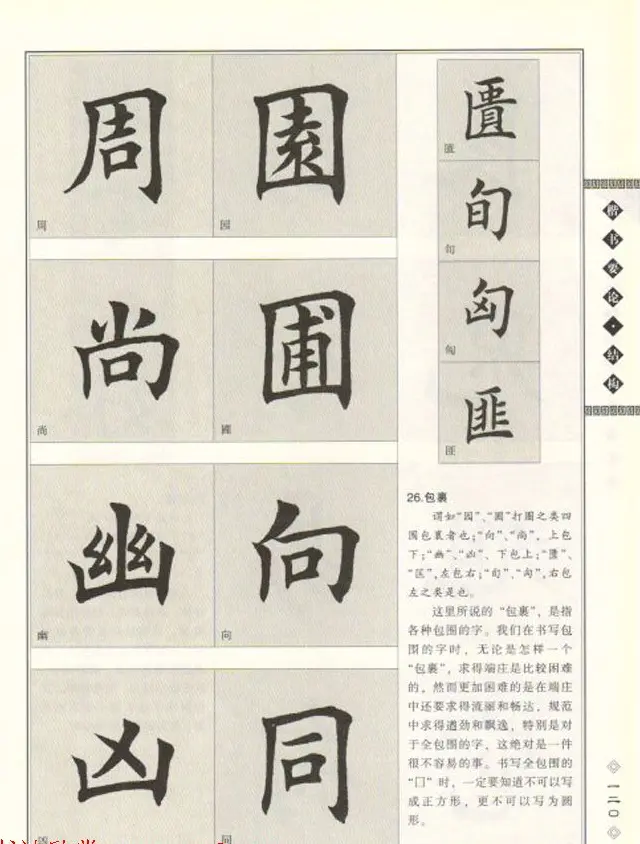 周
园
周
园
尚
圃
尚
圃
幽
向
幽
向
凶
同
同
匮
匮
旬
旬
匈
匈
匪
匪
楷书要论·结构
26.包裹
谓如“园”、“圃”打圈之类四
围包裹者也；“向”、“尚”，上包
下；“幽”、“凶”、下包上；“匮”、
“匡”,左包右；“旬”、“匈”,右包
左之类是也。
这里所说的“包裹”，是指
各种包围的字。我们在书写包
围的字时，无论是怎样一个
“包裹”，求得端庄是比较困难
的，然而更加困难的是在端庄
中还要求得流丽和畅达，规范
中求得遒劲和飘逸，特别是对
于全包围的字，这绝对是一件
很不容易的事。书写全包围的
“囗”时，一定要知道不可以写
成正方形，更不可以写为圆
形。
一二〇